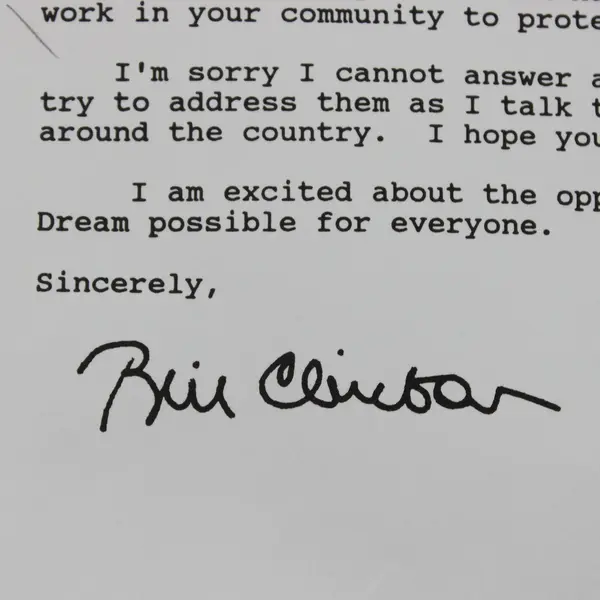 work in your community to prote
I'm sorry I cannot answer a
try to address them as I talk t
around the country. I hope you
I am excited about the opp
Dream possible for everyone.
Sincerely,
Bill Clinton